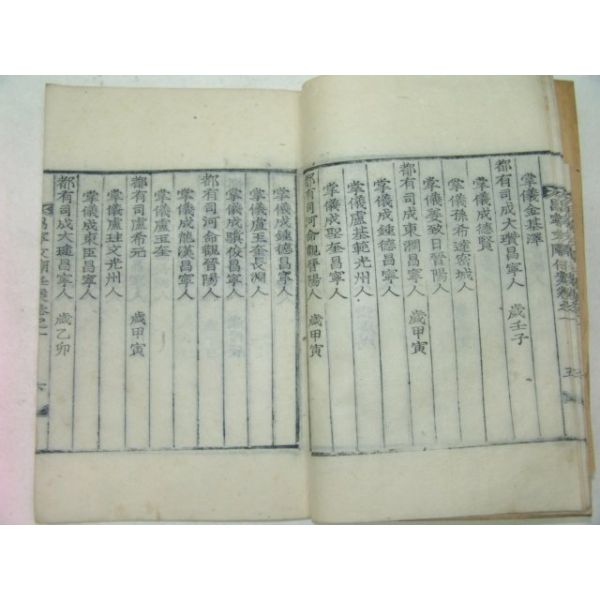 掌儀金基澤
都有司成大瓚昌寧人 歲壬子
掌儀成德賢
掌儀孫希達密城人
掌儀姜致日晉陽人
都有司成東潤昌寧人 歲甲寅
掌儀盧基範光州人
掌儀成鍾德昌寧人
掌儀成聖奎昌寧人
都有司河命觀晉陽人 歲甲寅
掌儀成鍾德昌寧人
掌儀盧玉奎長淵人
掌儀成驥俊昌寧人
都有司河命觀晉陽人 歲甲寅
掌儀成龍漢昌寧人
掌儀盧玉奎
都有司盧希元
掌儀盧珪文光州人
掌儀成東臣昌寧人
都有司成大璉昌寧人 歲乙卯